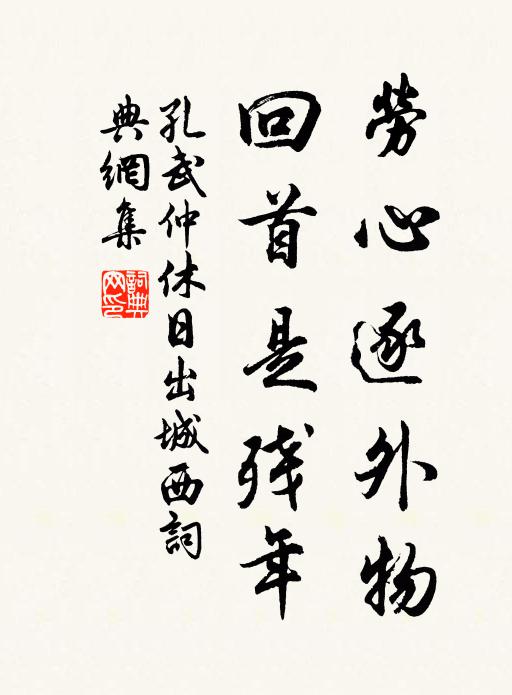 勞心逐外物
回首是残年
孔武仲休日出城西詞
典網集
詞典
网印